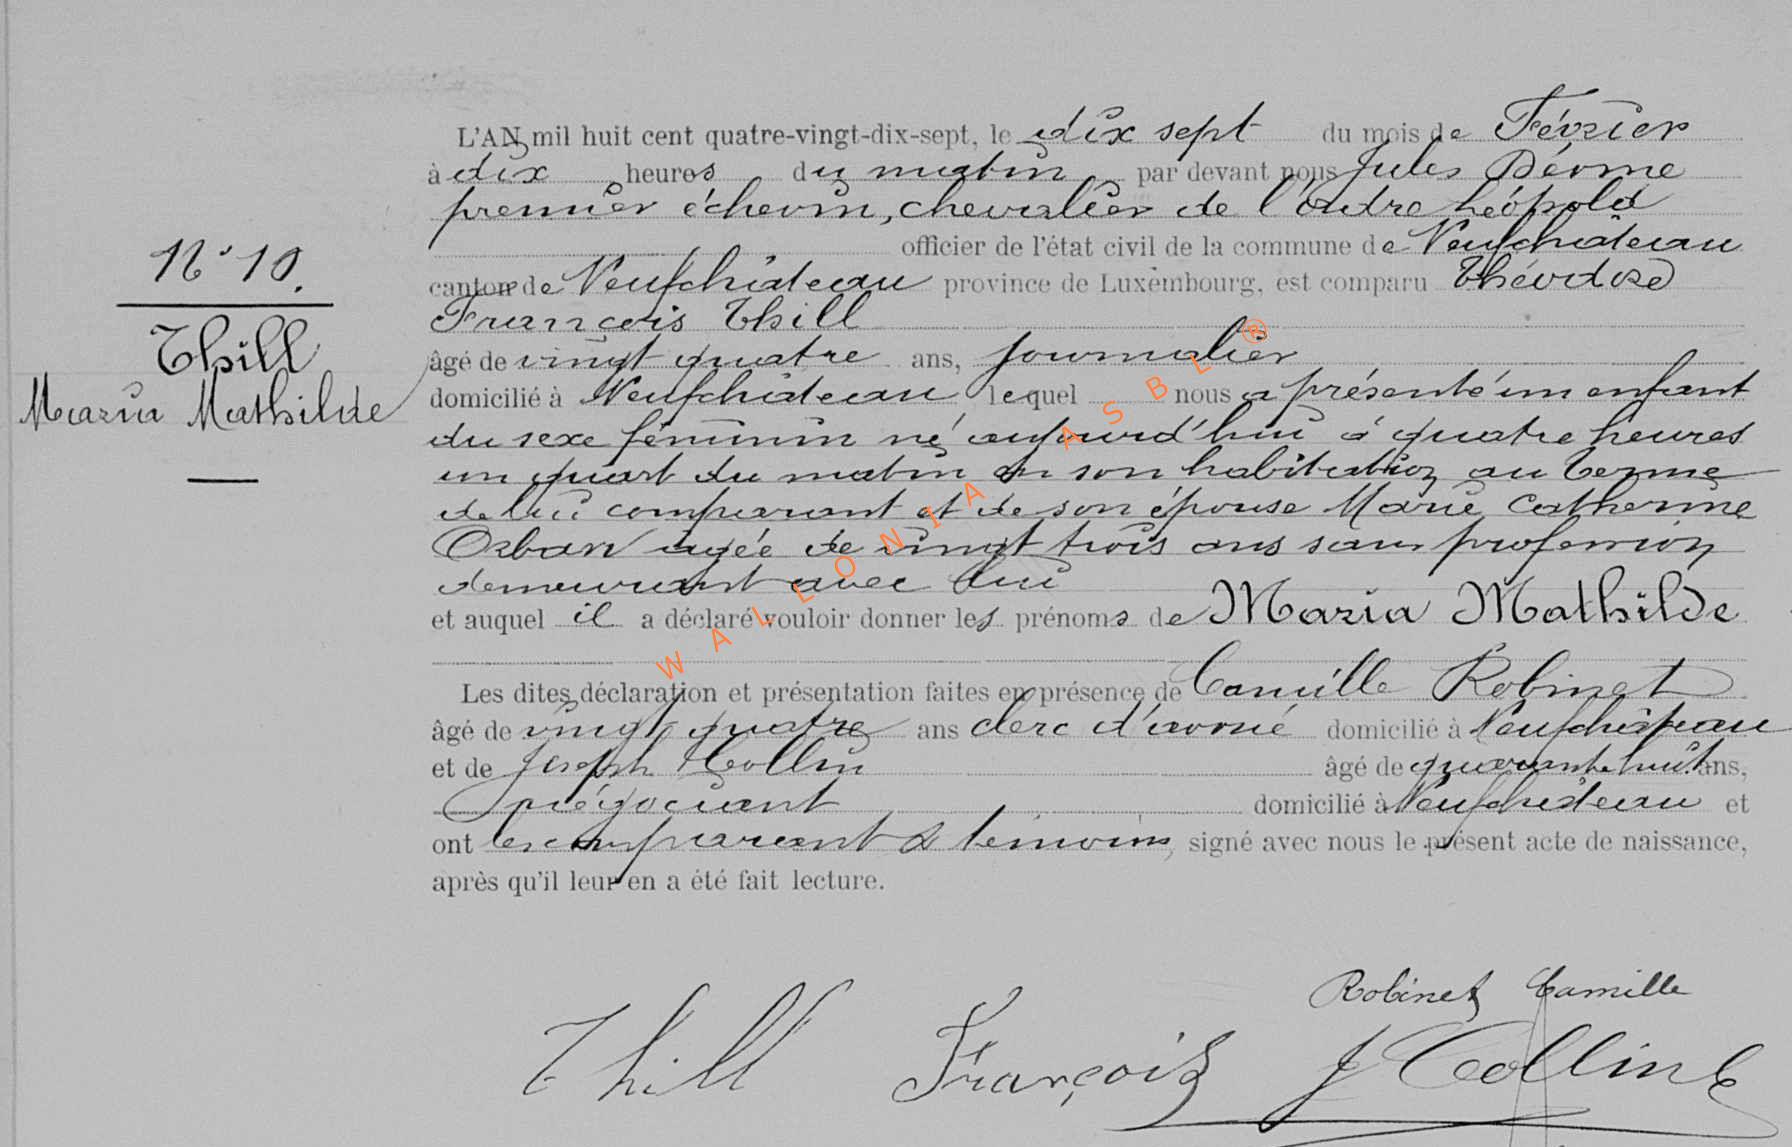 L'AN mil huit cent quatre-vingt-dix-sept, le dix sept du mois de Février
à dix heures du matin par devant nous Jules Déome
premier échevin, chevalier de l'ordre Léopold
officier de l'état civil de la commune de Neufchâteau
canton de Neufchâteau province de Luxembourg, est comparu Théodose
François Thill
âgé de vingt quatre ans, journalier
domicilié à Neufchâteau lequel nous a présenté un enfant
du sexe féminin né aujourd'hui à quatre heures
un quart du matin en son habitation au Terme
de lui comparant et de son épouse Marie Catherine
Orban agée de vingt trois ans sans profession
demeurant avec lui
et auquel il a déclaré vouloir donner les prénoms de Maria Mathilde
Les dites déclaration et présentation faites en présence de Camille Robinet
âgé de vingt quatre ans clerc d'avoué domicilié à Neufchâteau
et de Joseph Collin âgé de quarante huit ans,
négociant domicilié à Neufchâteau et
ont les comparant & témoins, signé avec nous le présent acte de naissance,
après qu'il leur en a été fait lecture.
N° 10.
Thill
Maria Mathilde
Robinet Camille
Thill François J Collin
WALLONIA ASBL ®